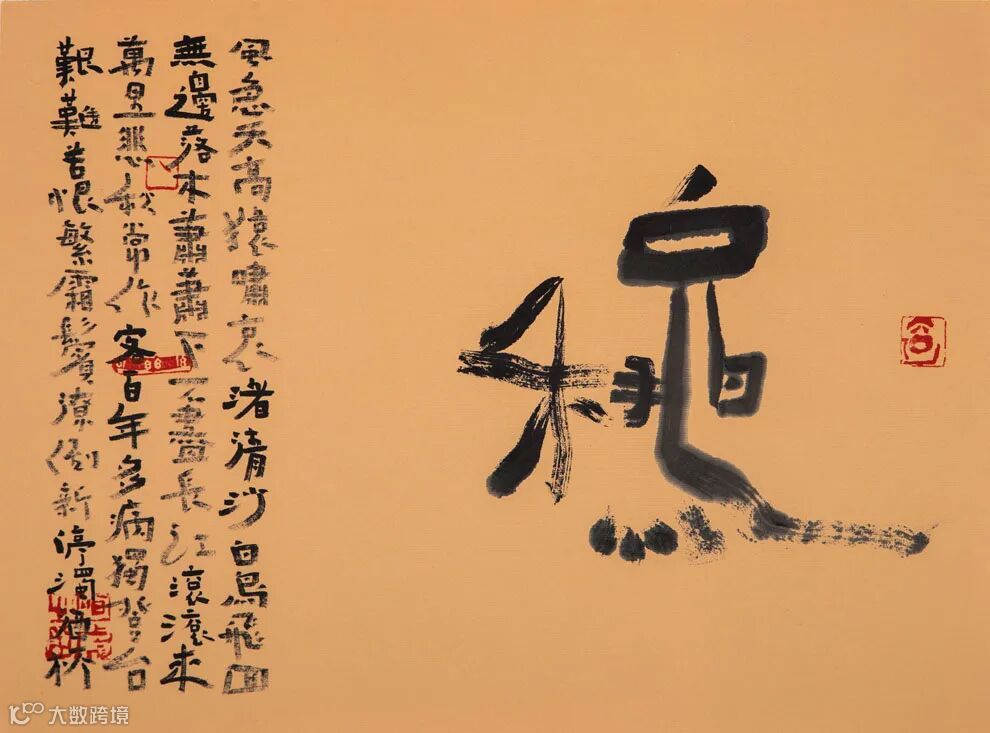 龝
風急天高猿嘯哀渚清沙白鳥飛回
無邊落木蕭蕭下不盡長江滾滾來
萬里悲秋常作客百年多病獨登台
艱難苦恨繁霜鬢潦倒新停濁酒杯
大数跨境